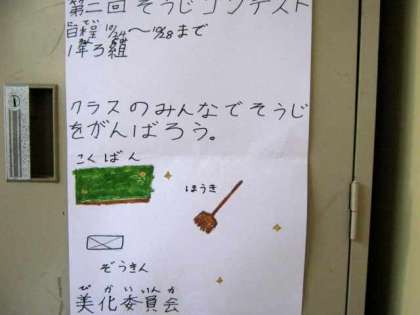 第二回 そうじコンテスト
日程 10/24〜10/28まで
クラスのみんなでそうじ
をがんばろう。
こくばん
ほうき
ぞうきん
びかいいんか
美化委員会